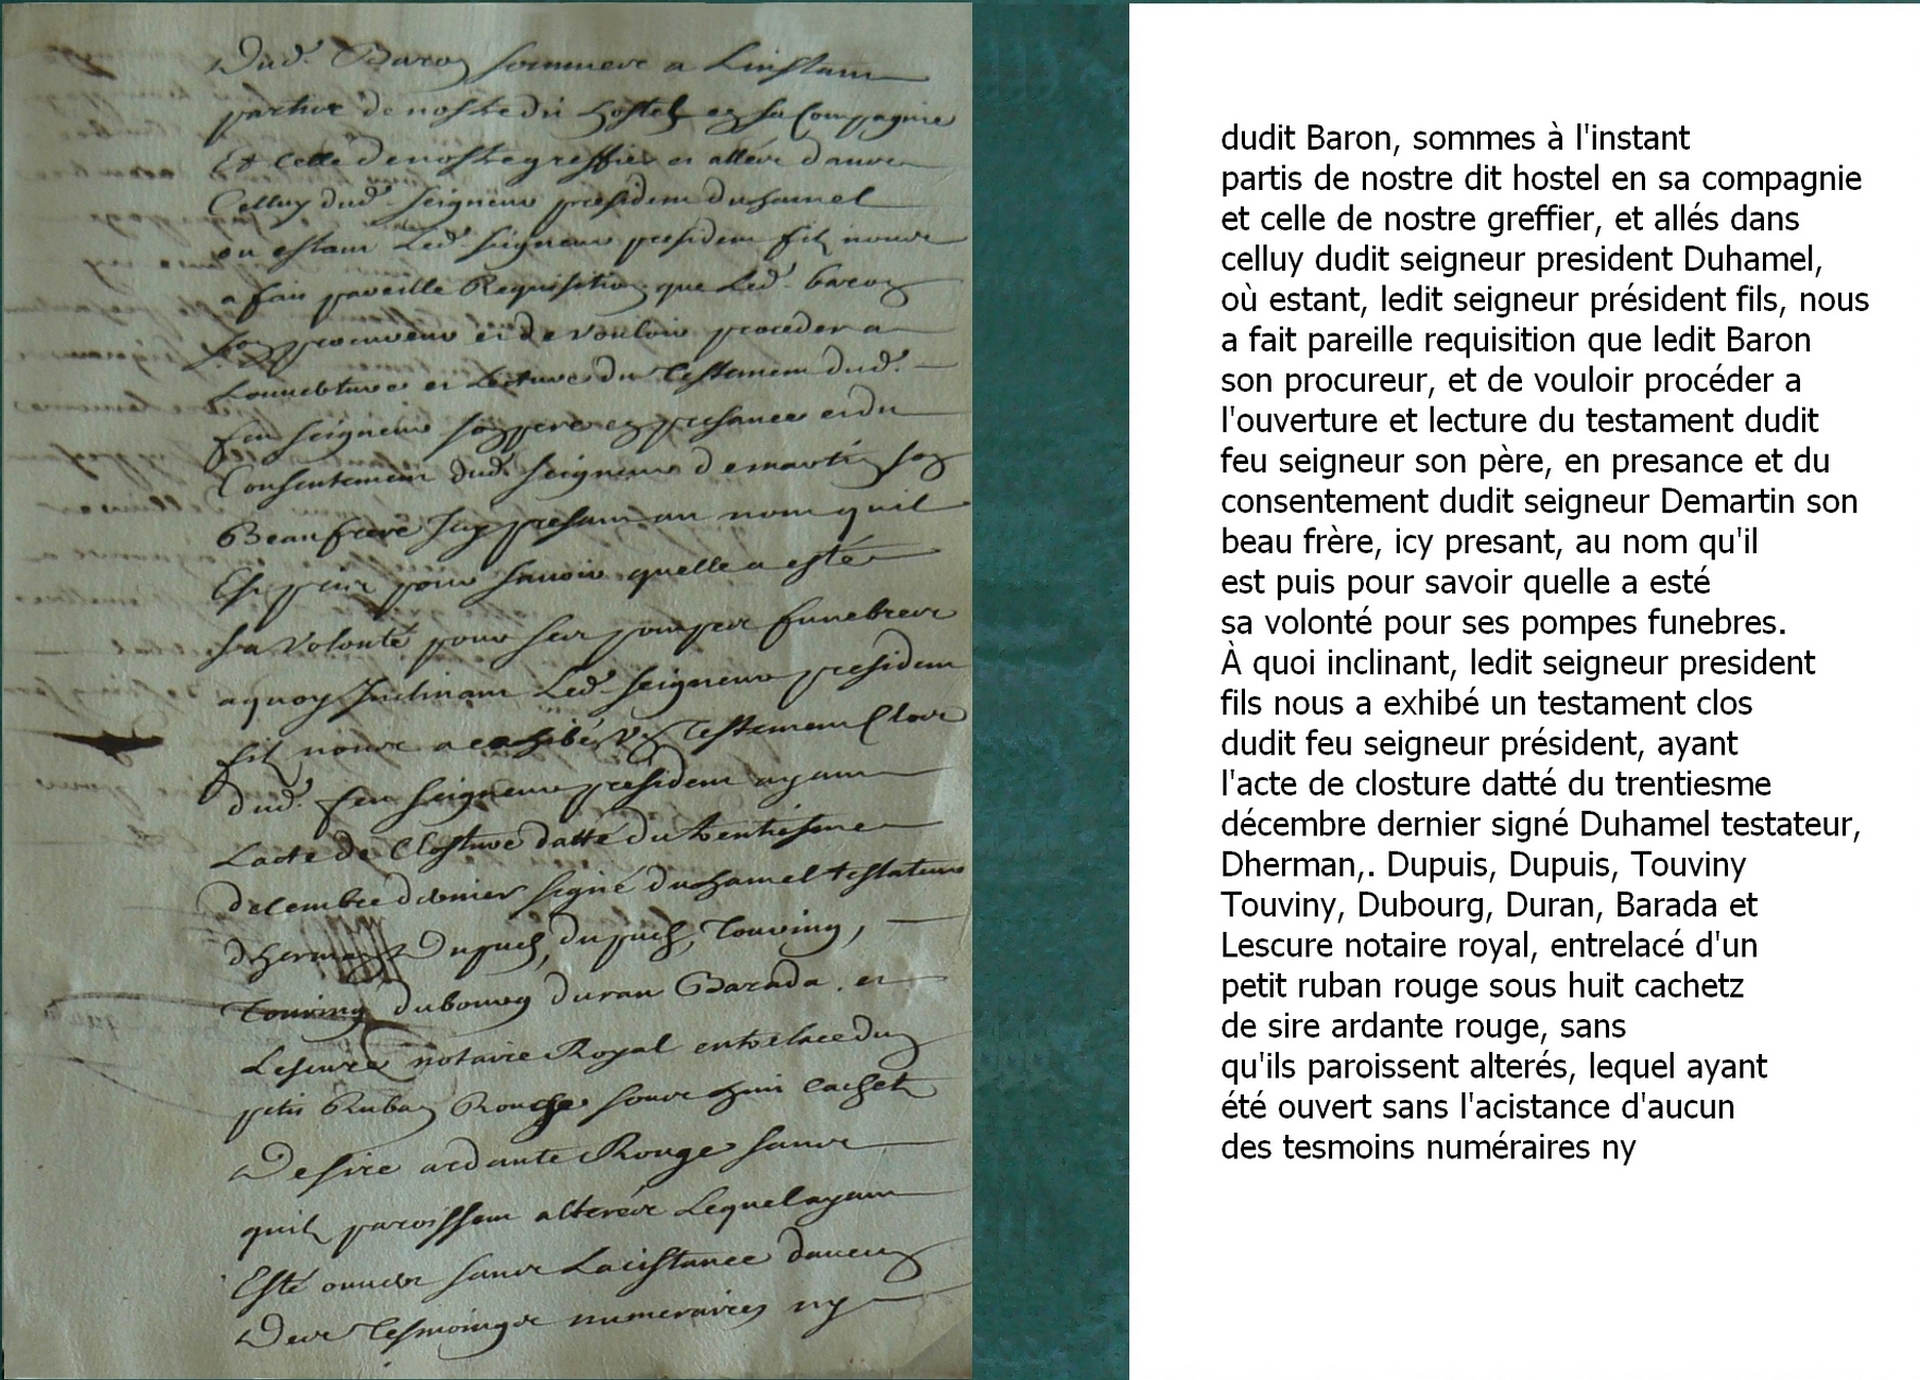 Dud. Baron sommes a Linstant
partis de nostre dit hostel en sa Compagnie
Et Celle de nostre greffier et alles dans
Celluy dud. seigneur president duhamel
ou estant Led. seigneur president fils nous
a fait pareille Requisition que Led. baron
son procureur et de vouloir proceder a
Louverture et Lecture du Testament dud.
feu seigneur son pere en presance et du
Consentement dud. seigneur demartin son
Beaufrere Icy presant au nom quil
Est pour savoir quelle a esté
sa volonté pour ses pompes funebres
a quoy Inclinant Led. seigneur president
fils nous a exhibé un Testament Clos
dud. feu seigneur president ayant
Lacte de Closture datté du trentiesme
decembre dernier signé duhamel testateur
dherman Dupuch, dupuch, Touviny,
Touviny dubourg duran Barada. et
Lescure notaire Royal entrelace dun
petit Ruban Rouge sous huit cachetz
De sire ardante Rouge sans
quilz paroissent alterés Lequel ayant
Esté ouvert sans Lacistance daucun
Des Tesmoings numeraires ny
dudit Baron, sommes à l'instant
partis de nostre dit hostel en sa compagnie
et celle de nostre greffier, et allés dans
celluy dudit seigneur president Duhamel,
où estant, ledit seigneur président fils, nous
a fait pareille requisition que ledit Baron
son procureur, et de vouloir procéder a
l'ouverture et lecture du testament dudit
feu seigneur son père, en presance et du
consentement dudit seigneur Demartin son
beau frère, icy presant, au nom qu'il
est puis pour savoir quelle a esté
sa volonté pour ses pompes funebres.
À quoi inclinant, ledit seigneur president
fils nous a exhibé un testament clos
dudit feu seigneur président, ayant
l'acte de closture datté du trentiesme
décembre dernier signé Duhamel testateur,
Dherman,. Dupuis, Dupuis, Touviny
Touviny, Dubourg, Duran, Barada et
Lescure notaire royal, entrelacé d'un
petit ruban rouge sous huit cachetz
de sire ardante rouge, sans
qu'ils paroissent alterés, lequel ayant
été ouvert sans l'acistance d'aucun
des tesmoins numéraires ny